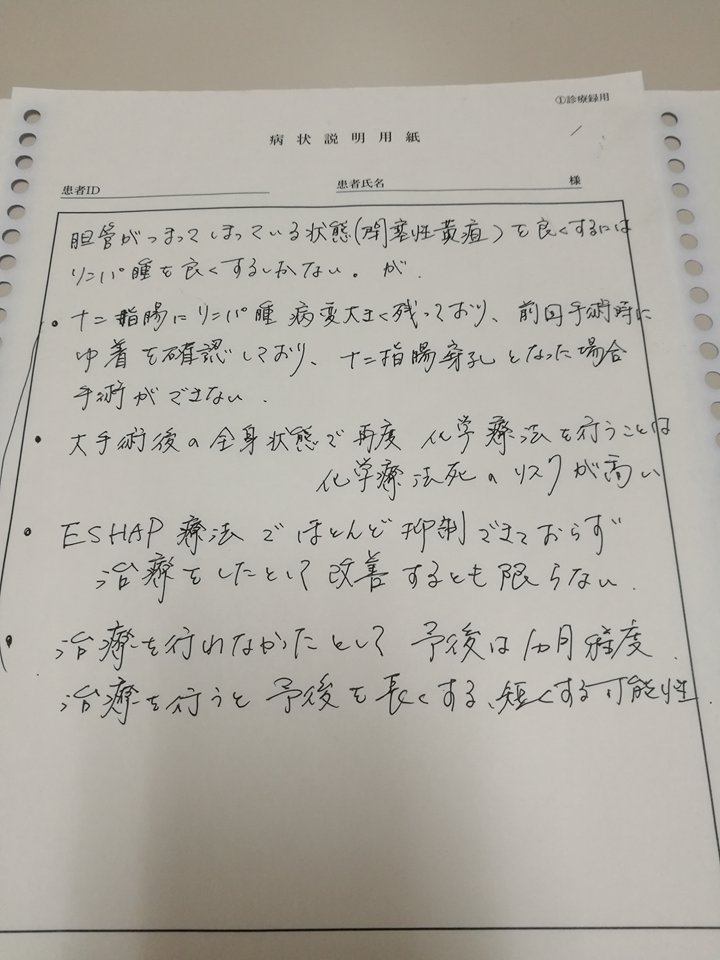 ①診療録用
病状説明用紙
患者ID
患者氏名 様
胆管がつまってしまっている状態(閉塞性黄疸)を良くするには
リンパ腫を良くするしかない。が、
・十二指腸にリンパ腫病変大きく残っており、前回手術時に
ゆ着を確認しており、十二指腸穿孔となった場合
手術ができない.
・大手術後の全身状態で再度 化学療法を行うことは
化学療法死のリスクが高い
・ESHAP療法でほとんど抑制できておらず
治療をしたとして改善するとも限らない.
・治療を行れなかたとして 予後は1カ月程度.
治療を行うと 予後を長くする、短くする可能性.